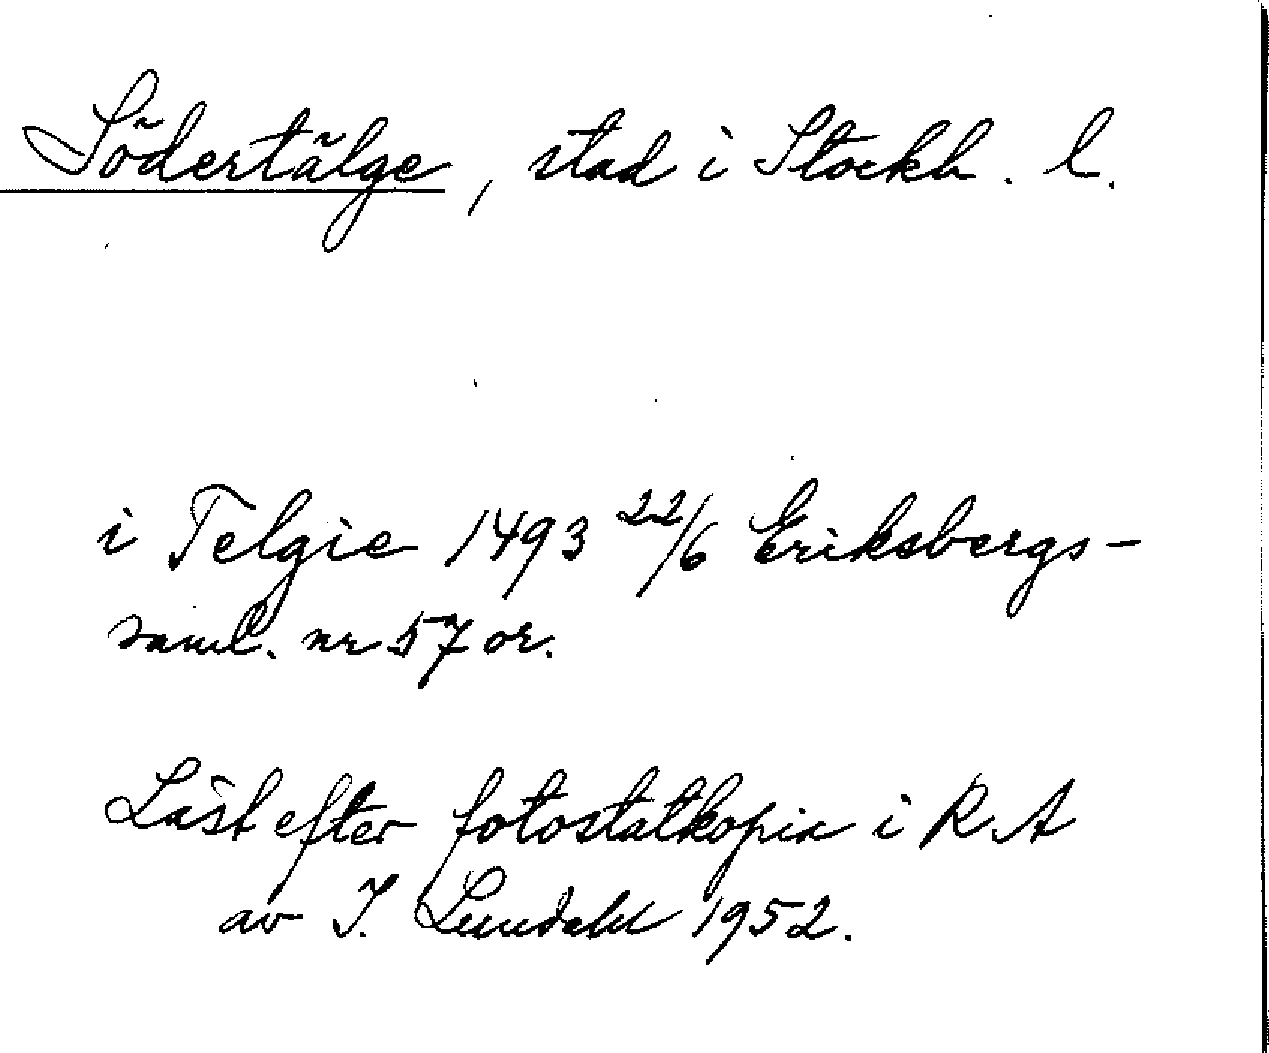 Södertälge, stad i Stockh. l.
i Telgie 1493 22/6 Eriksbergs-
saml. nr 57 or.
Läst efter fotostatkopia i RA
av I. Lundahl 1952.